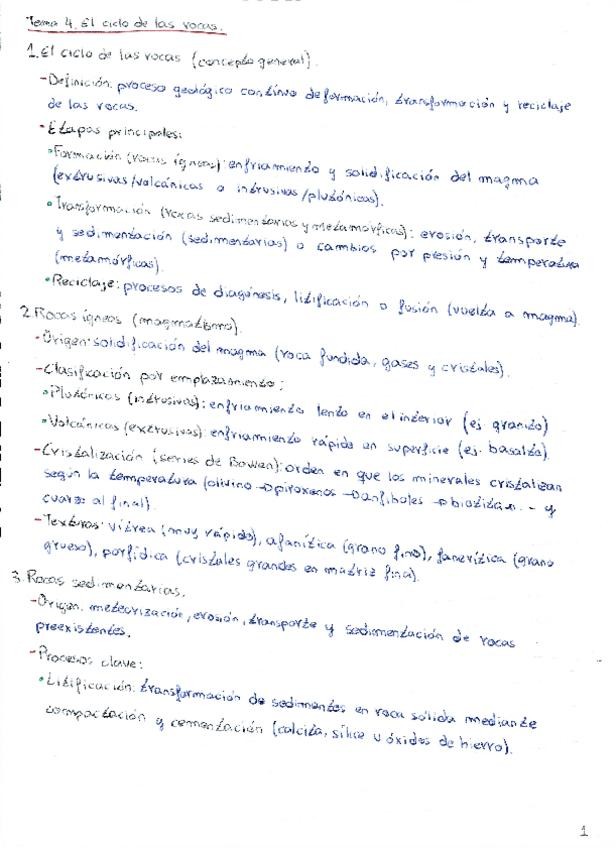 Tema 4. El ciclo de las rocas.
1. El ciclo de las rocas (concepto general).
-Definición: proceso geológico continuo de formación, transformación y reciclaje
de las rocas.
-Etapas principales:
•Formación (rocas ígneas): enfriamiento y solidificación del magma
(extrusivas/volcánicas o intrusivas/plutónicas).
•Transformación (rocas sedimentarias y metamórficas): erosión, transporte
y sedimentación (sedimentarias) o cambios por presión y temperatura
(metamórficas).
•Reciclaje: procesos de diagénesis, litificación o fusión (vuelta a magma).
2. Rocas ígneas (magmatismo).
-Origen: solidificación del magma (roca fundida, gases y cristales).
-Clasificación por emplazamiento:
•Plutónicas (intrusivas): enfriamiento lento en el interior (ej. granito)
•Volcánicas (extrusivas): enfriamiento rápido en superficie (ej. basalto).
-Cristalización (series de Bowen): orden en que los minerales cristalizan
según la temperatura (olivino → piroxenos → anfíboles → biotita... y
cuarzo al final).
-Texturas: vítrea (muy rápido), afanítica (grano fino), fanerítica (grano
grueso), porfídica (cristales grandes en matriz fina).
3. Rocas sedimentarias.
-Origen: meteorización, erosión, transporte y sedimentación de rocas
preexistentes.
-Procesos clave:
•Litificación: transformación de sedimentos en roca sólida mediante
compactación y cementación (calcita, sílice u óxidos de hierro).
1